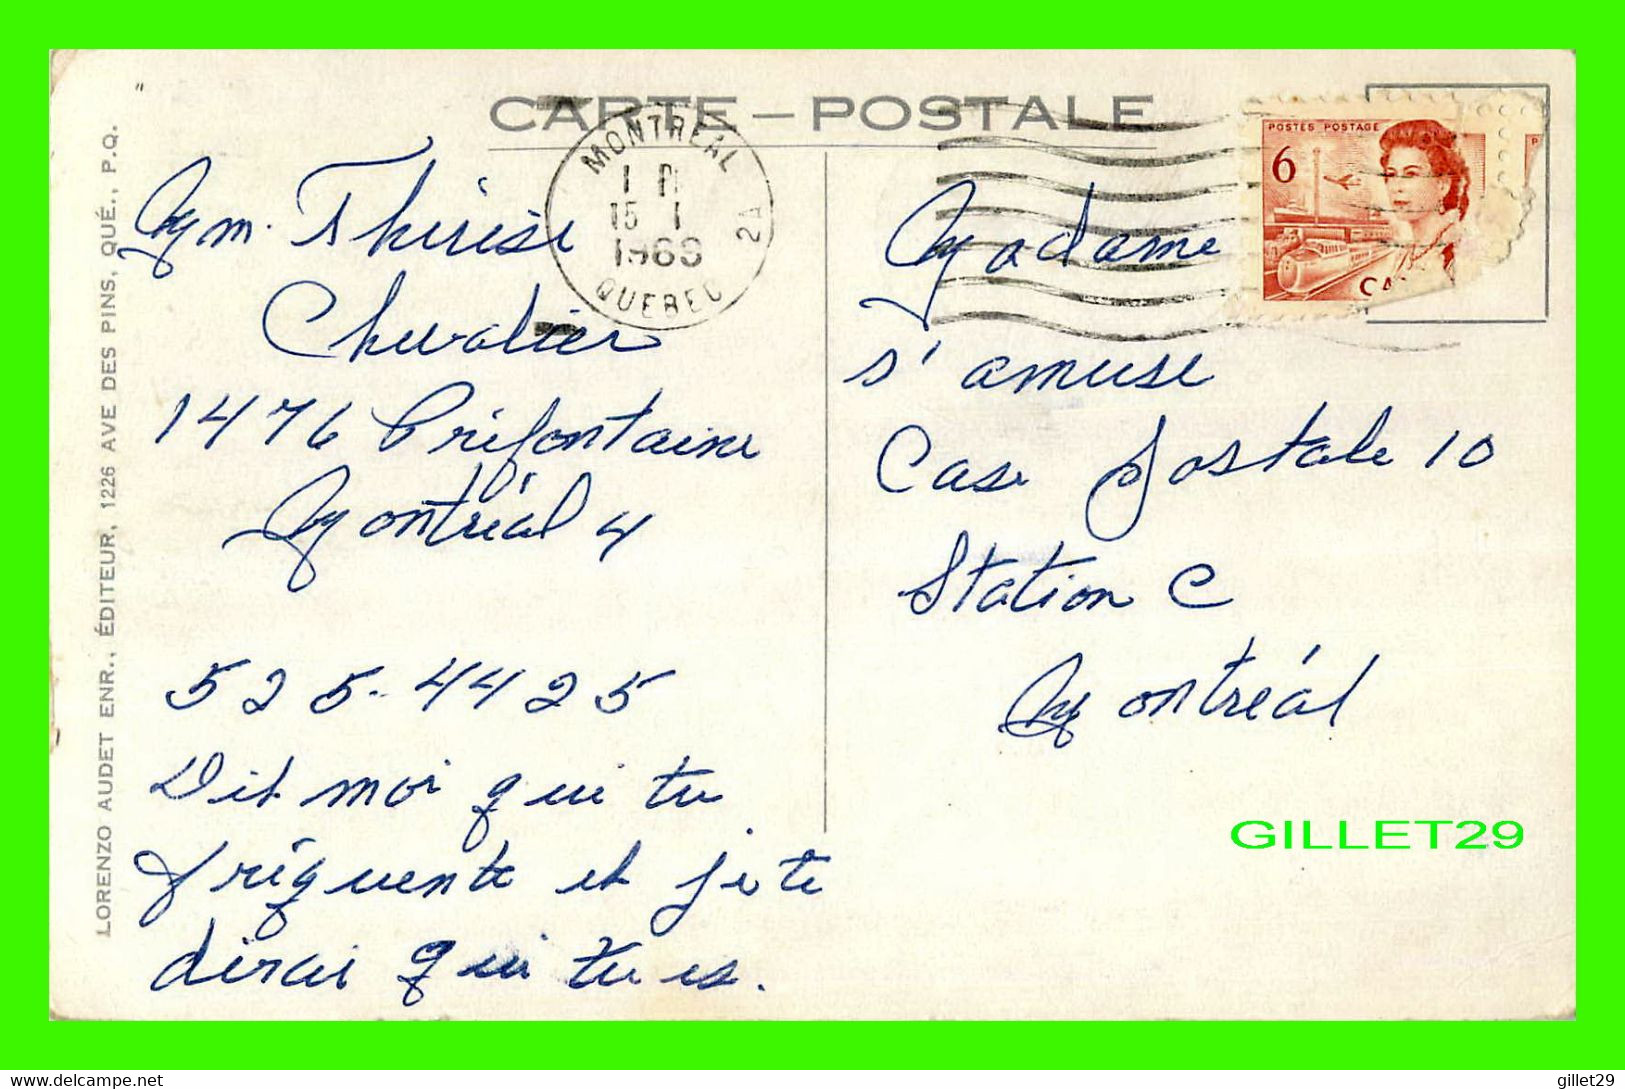 CARTE – POSTALE
MONTREAL
15 I
1969
2A
QUEBEC
POSTES POSTAGE
6
CA
Mm. Thérèse
Chevalier
1476 Préfontaine
Montréal 4
525-4425
Dit moi qui tu
fréquente et je te
dirai qui tu es.
Madame
s'amuse
Case Postale 10
Station C
Montréal
LORENZO AUDET ENR., ÉDITEUR, 1226 AVE DES PINS, QUÉ., P.Q.
GILLET29
delcampe.net
gillet29